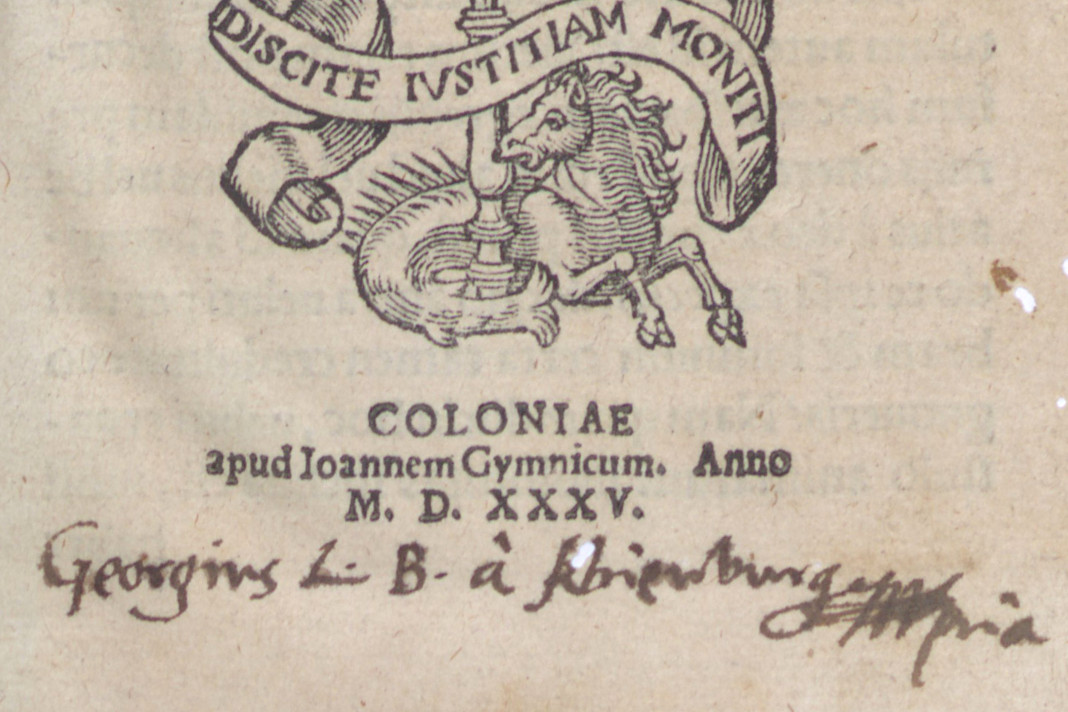 DISCITE IVSTITIAM MONITI
COLONIAE
apud Ioannem Gymnicum. Anno
M. D. XXXV.
Georgius L. B. â